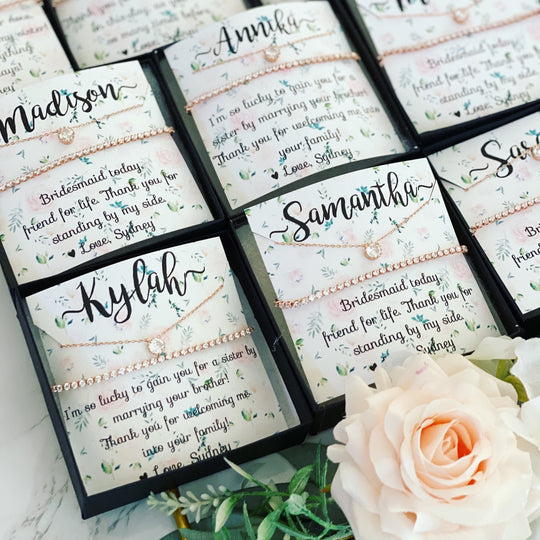 to
Annika
I'm so lucky to gain you for a
sister by marrying your brother!
Thank you for welcoming me into
your family!
Love, Sydney
M
Bridesmaid today,
friend for life. Thank you for
standing by my side.
Love, Sydney
Madison
Bridesmaid today,
friend for life. Thank you for
standing by my side.
Love, Sydney
Samantha
Bridesmaid today,
friend for life. Thank you for
standing by my side.
Sydney
Sar
Bridesmaid
friend for life.
standing by
Love,
Kylah
I'm so lucky to gain you for a sister by
marrying your brother!
Thank you for welcoming me
into your family!
Love, Sydney